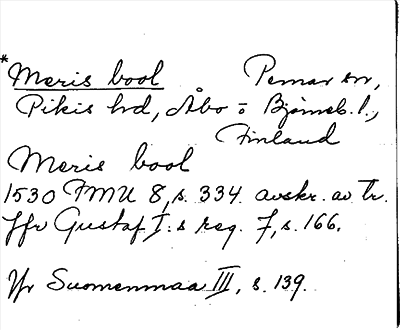 *Meris bool Pemar sn,
Pikis hd, Åbo o Björneb. l.,
Finland
Meris bool
1530 FMU 8, s. 334. avskr. av tr.
Jfr Gustaf I:s reg. 7, s. 166.
Jfr Suomenmaa III, s. 139.